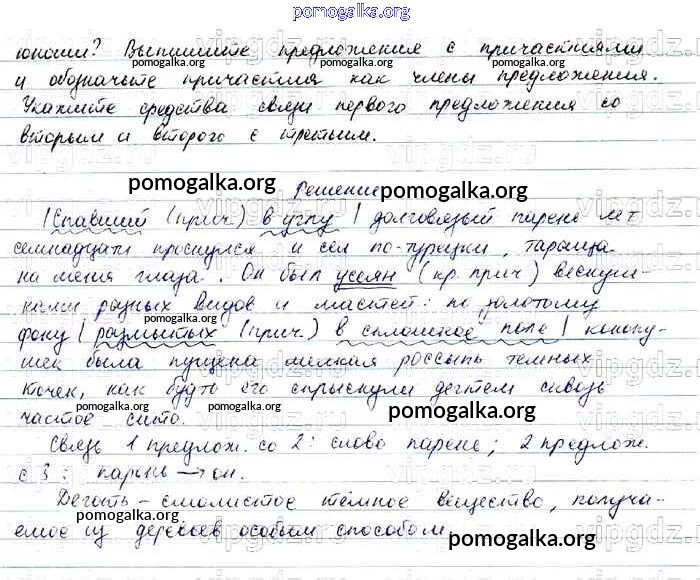 pomogalka.org
юноши? Выпишите предложения с причастиями
и обозначьте причастия как члены предложения.
Укажите средства связи первого предложения со
вторым и второго с третьим.
Решение
pomogalka.org pomogalka.org
|Спавший (прич.) в углу | долговязый парень лет
семнадцати проснулся и сел по-турецки, тараща
на меня глаза. Он был усеян (кр. прич) веснуш-
pomogalka.org pomogalka.org
ками разных видов и мастей: по золотому
фону | размытых (прич.) в сплошное поле | конопу-
pomogalka.org
шек была пущена мелкая россыпь темных
точек, как будто его спрыснули дегтем сквозь
частое сито.
pomogalka.org pomogalka.org pomogalka.org
Связь 1 предлож. со 2: слово парень; 2 предлож.
с 3: парень → он.
pomogalka.org
Деготь – смолистое тёмное вещество, получа-
pomogalka.org
емое из деревьев особым способом.
pomogalka.org
vipgdz.ru